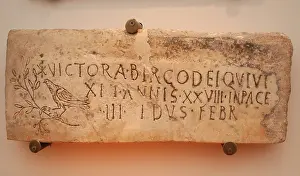 VICTORA·BIRGO DEI QVIVI
XIT·ANNIS·XXVIII·INPACE
III·IDVS·FEBR